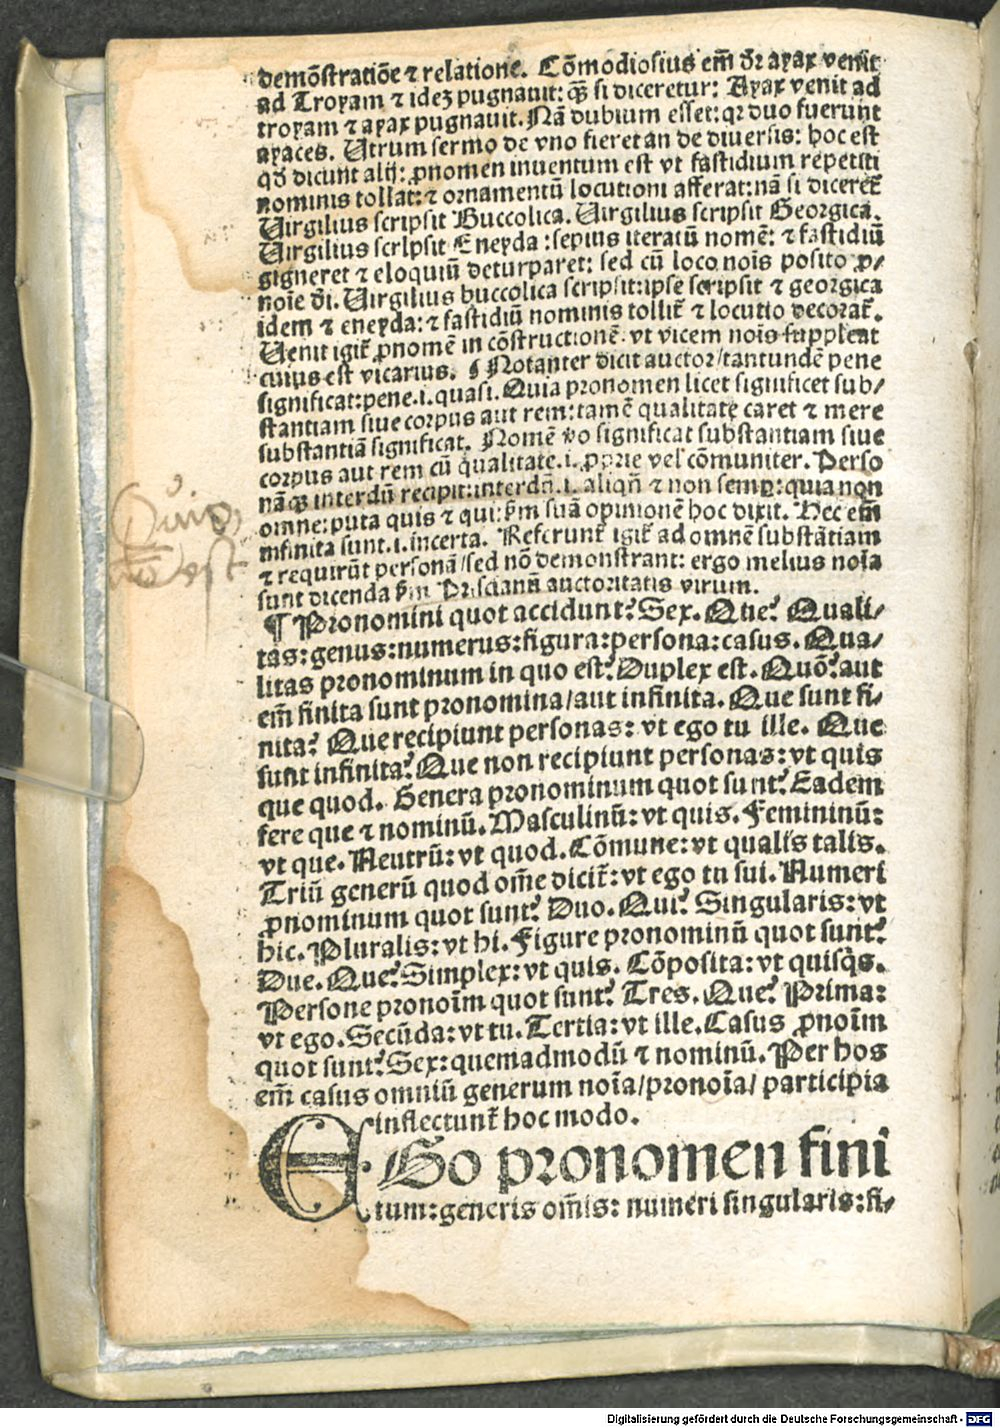 demōstratiōe ⁊ relatione. Cōmodiosius em̄ dr̄ ayax venit
ad Troyam ⁊ ideꝫ pugnauit: qꝫ̄ si diceretur: Ayax venit ad
troyam ⁊ ayax pugnauit. Nā dubium esset: qꝛ duo fuerunt
ayaces. Utrum sermo de vno fieret an de diuersis: hoc est
qd̄ dicunt alij: ꝓnomen inuentum est vt fastidium repetiti
nominis tollat: ⁊ ornamentū locutioni afferat: nā si diceret̄
Uirgilius scripsit Buccolica. Uirgilius scripsit Georgica.
Uirgilius scrlpsit Eneyda: sepius iteratū nomē: ⁊ fastidiū
gigneret ⁊ eloquiū deturparet: sed cū loco nois posito ꝓ/
noīe dī. Uirgilius buccolica scripsit: ipse scripsit ⁊ georgica
idem ⁊ eneyda: ⁊ fastidiū nominis tollit̄ ⁊ locutio decorat̄.
Uenit igit̄ ꝓnomē in cōstructionē. vt vicem nois suppleat
cuius est vicarius. ¶ Notanter dicit auctor/ tantundē pene
significat: pene .i. quasi. Quia pronomen licet significet sub/
stantiam siue corpus aut rem: tamē qualitate caret ⁊ mere
substantiā significat. Nomē ꝟo significat substantiam siue
corpus aut rem cū qualitate .i. ꝓprie vel cōmuniter. Perso
nāqꝫ interdū recipit: interdū .i. aliqn̄ ⁊ non semꝑ: quia non
omne: puta quis ⁊ qui: ẜm suā opinionē hoc dixit. Hec em̄
infinita sunt .i. incerta. Referunt̄ igit̄ ad omnē substātiam
⁊ requirūt personā/ sed nō demonstrant: ergo melius noīa
sunt dicenda ẜm Prisciannū auctoritatis virum.
¶ Pronomini quot accidunt? Sex. Que? Quali/
tas: genus: numerus: figura: persona: casus. Qua/
litas pronominum in quo est? Duplex est. Quō? aut
em̄ finita sunt pronomina/ aut infinita. Que sunt fi-
nita? Que recipiunt personas: vt ego tu ille. Que
sunt infinita? Que non recipiunt personas: vt quis
que quod. Genera pronominum quot sunt? Eadem
fere que ⁊ nominū. Masculinū: vt quis. Femininū:
vt que. Neutrū: vt quod. Cōmune: vt qualis talis.
Triū generū quod om̄e dicit̄: vt ego tu sui. Numeri
ꝓnominum quot sunt? Duo. Qui? Singularis: vt
hic. Pluralis: vt hi. Figure pronominū quot sunt?
Due. Que? Simplex: vt quis. Cōposita: vt quisqꝫs.
Persone pronoīm quot sunt? Tres. Que? Prima:
vt ego. Secūda: vt tu. Tertia: vt ille. Casus ꝓnoīm
quot sunt? Sex: quemadmodū ⁊ nominū. Per hos
em̄ casus omniū generum noīa/ pronoīa/ participia
inflectunt̄ hoc modo.
EGo pronomen fini
tum: generis om̄is: numeri singularis: fi-
est
Digitalisierung gefördert durch die Deutsche Forschungsgemeinschaft - DFG